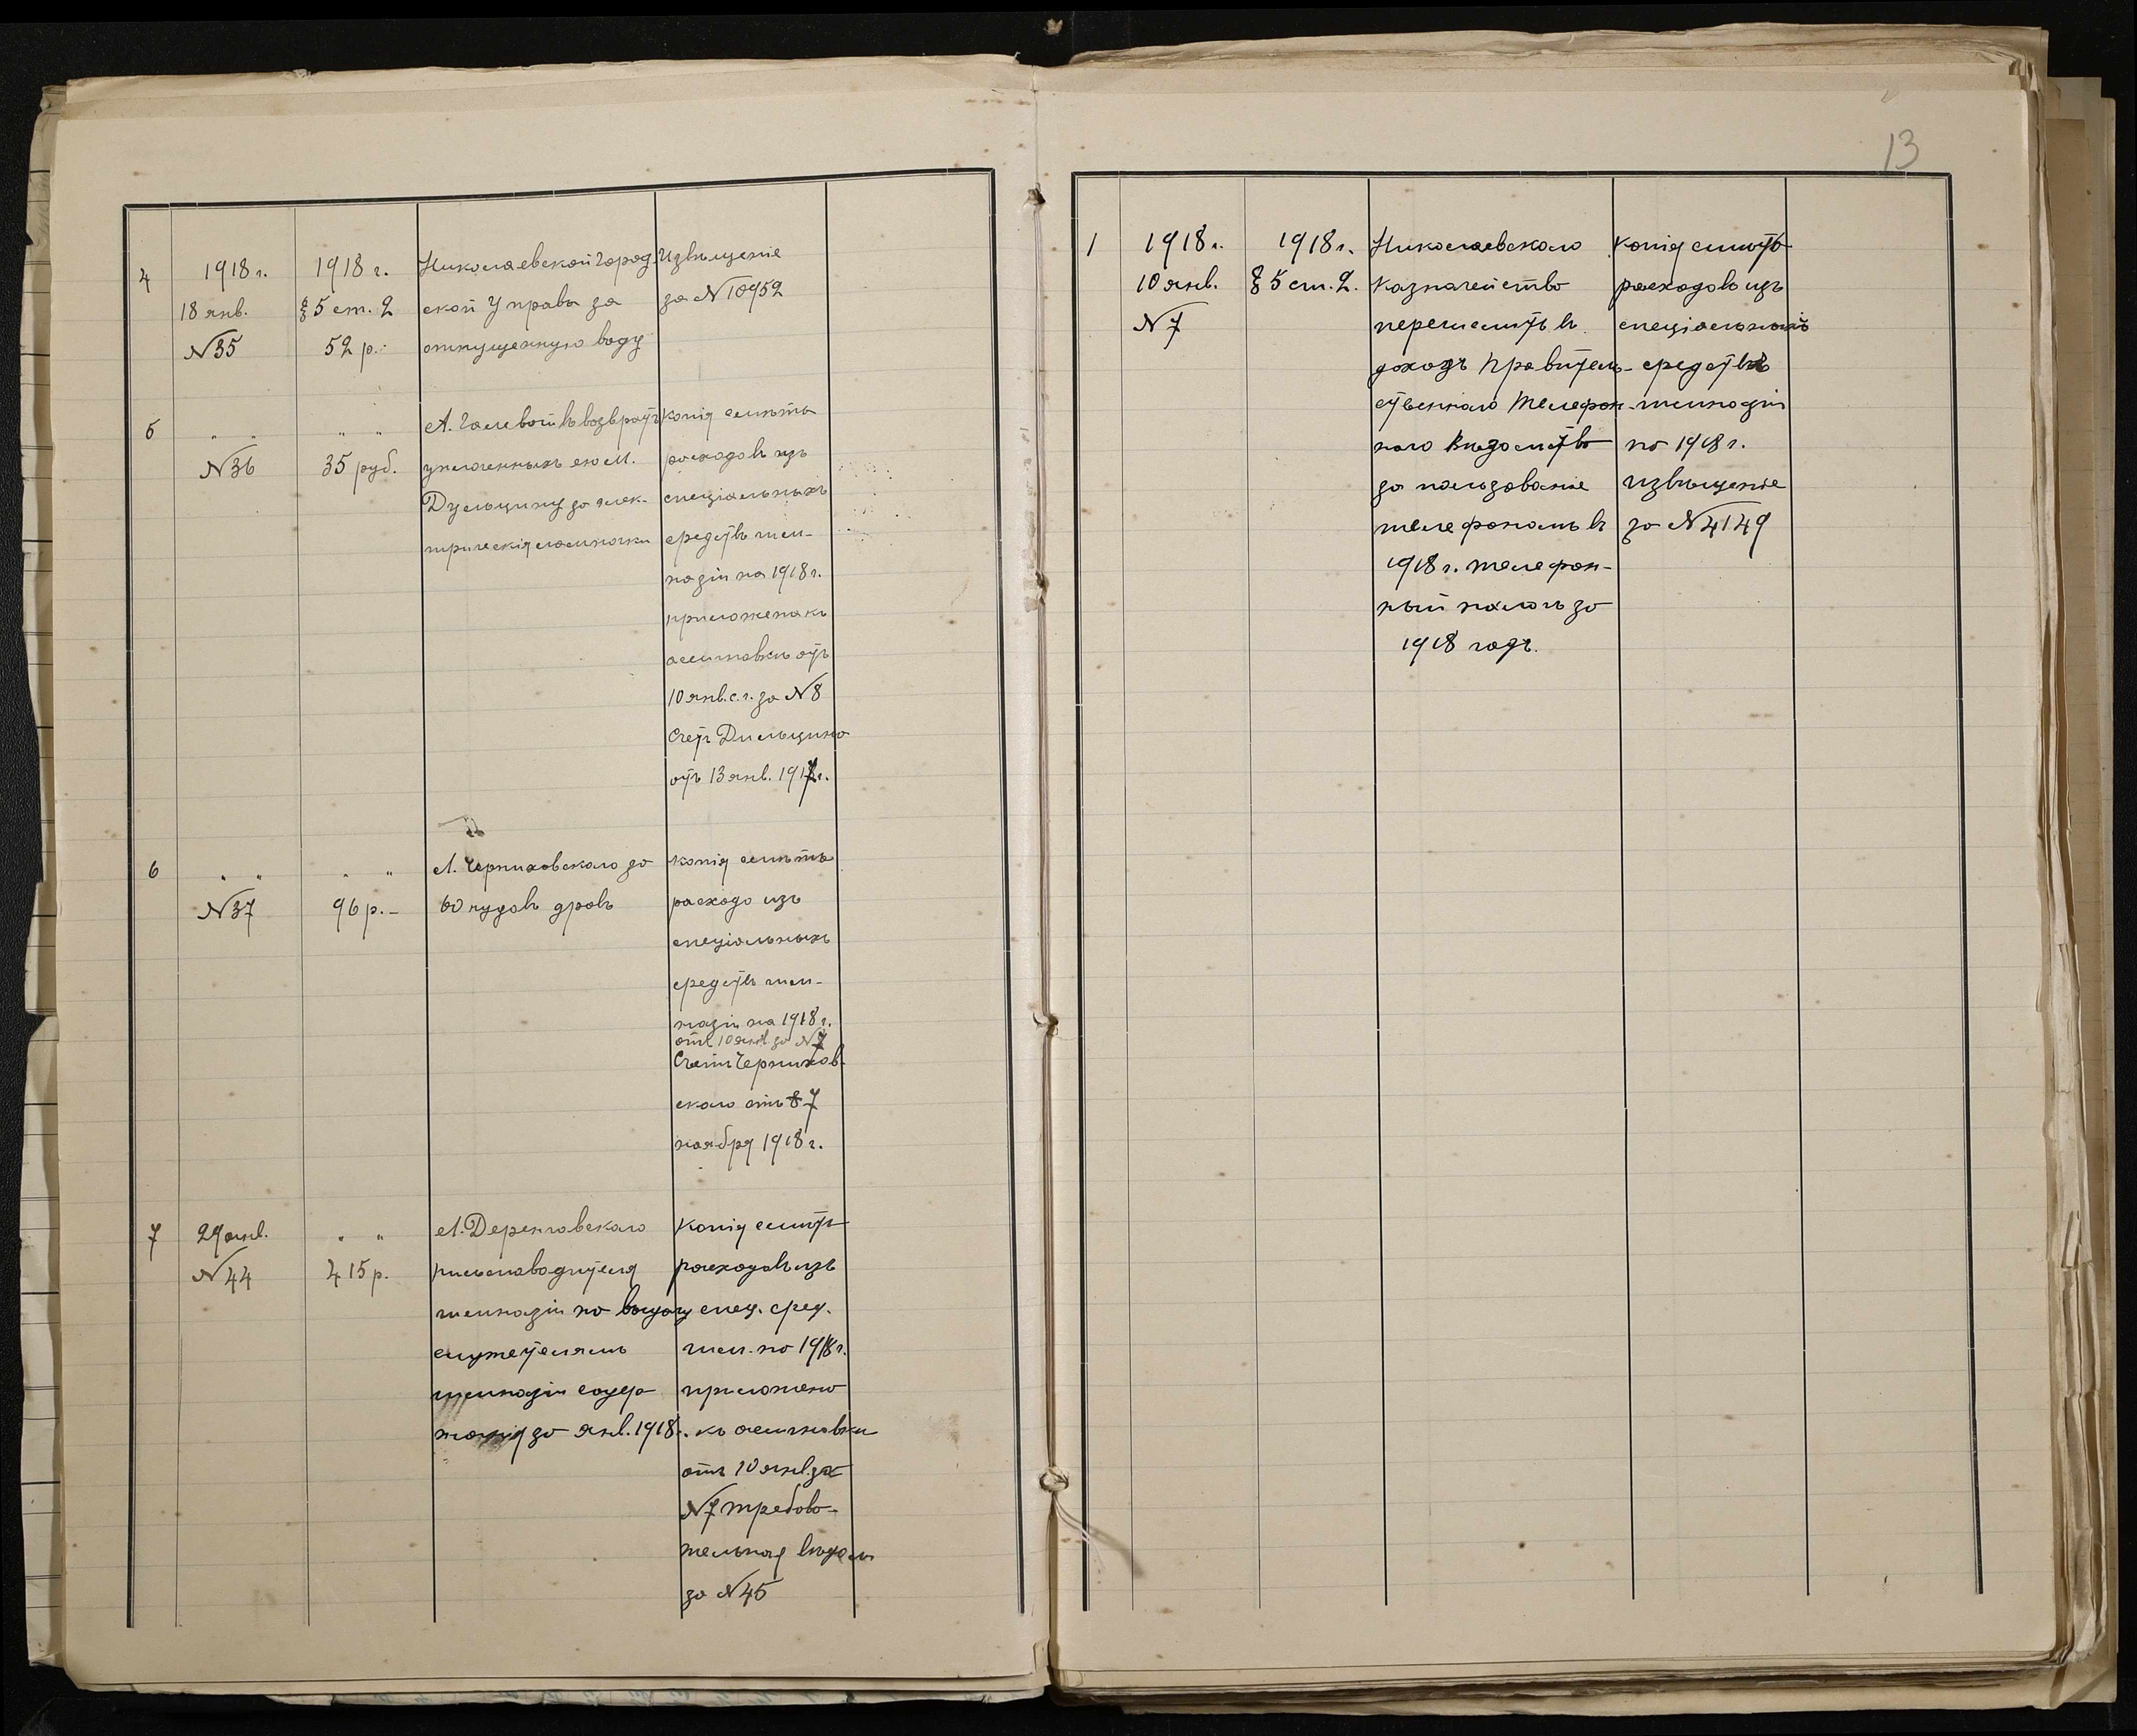 4
1918 г.
18 янв.
№35
1918 г.
§ 5 ст. 2
52 р.
Николаевской город-
ской Управѣ за
отпущенную воду
Извѣщеніе
за №10952
5
" "
№36
" "
35 руб.
А. въ возвратъ
уплоченныхъ ею М.
Дульцину за элек-
трическія лампочки
Копія смѣты
расходовъ изъ
спеціальныхъ
средствъ гим-
назіи на 1918 г.
приложена къ
ассигновкѣ отъ
10 янв. с. г. за №8
Счетъ Дильцина
отъ 13 янв. 1917 г.
6
" "
№37
" "
96 р. -
Л. Черниховскаго за
60 пудовъ дровъ
Копія смѣты
расхода изъ
спеціальныхъ
средствъ гим-
назіи на 1918 г.
отъ 10 янв за №7
Счетъ Чернихов-
скаго отъ 8 7
ноября 1918 г.
7
29 янв.
№44
" "
415 р.
Л. Деренговскаго
письмоводителя
гимназіи на выдачу
служителямъ
гимназіи содер-
жанія за янв. 1918 г.
Копія смѣтъ
расходовъ изъ
спец. сред.
гим. на 1918 г.
приложена
къ ассигновки
отъ 10 янв. за
№7 требова-
тельная вѣдом
за №45
13
1
1918 г.
10 янв.
№7
1918 г.
§ 5 ст. 2.
Николаевскаго
Казначейство
перечислить въ
доходъ Правитель-
ственнаго Телефон-
наго Вѣдомства
за пользованіе
телефономъ въ
1918 г. телефон-
ный налогъ за
1918 годъ.
Копія смѣтъ
расходовъ изъ
спеціальныхъ
средствъ
гимназіи
на 1918 г.
Извѣщеніе
за №4149